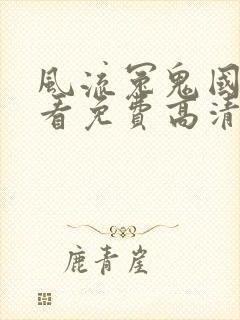 風流冤鬼國
看免費高清
鹿青崖